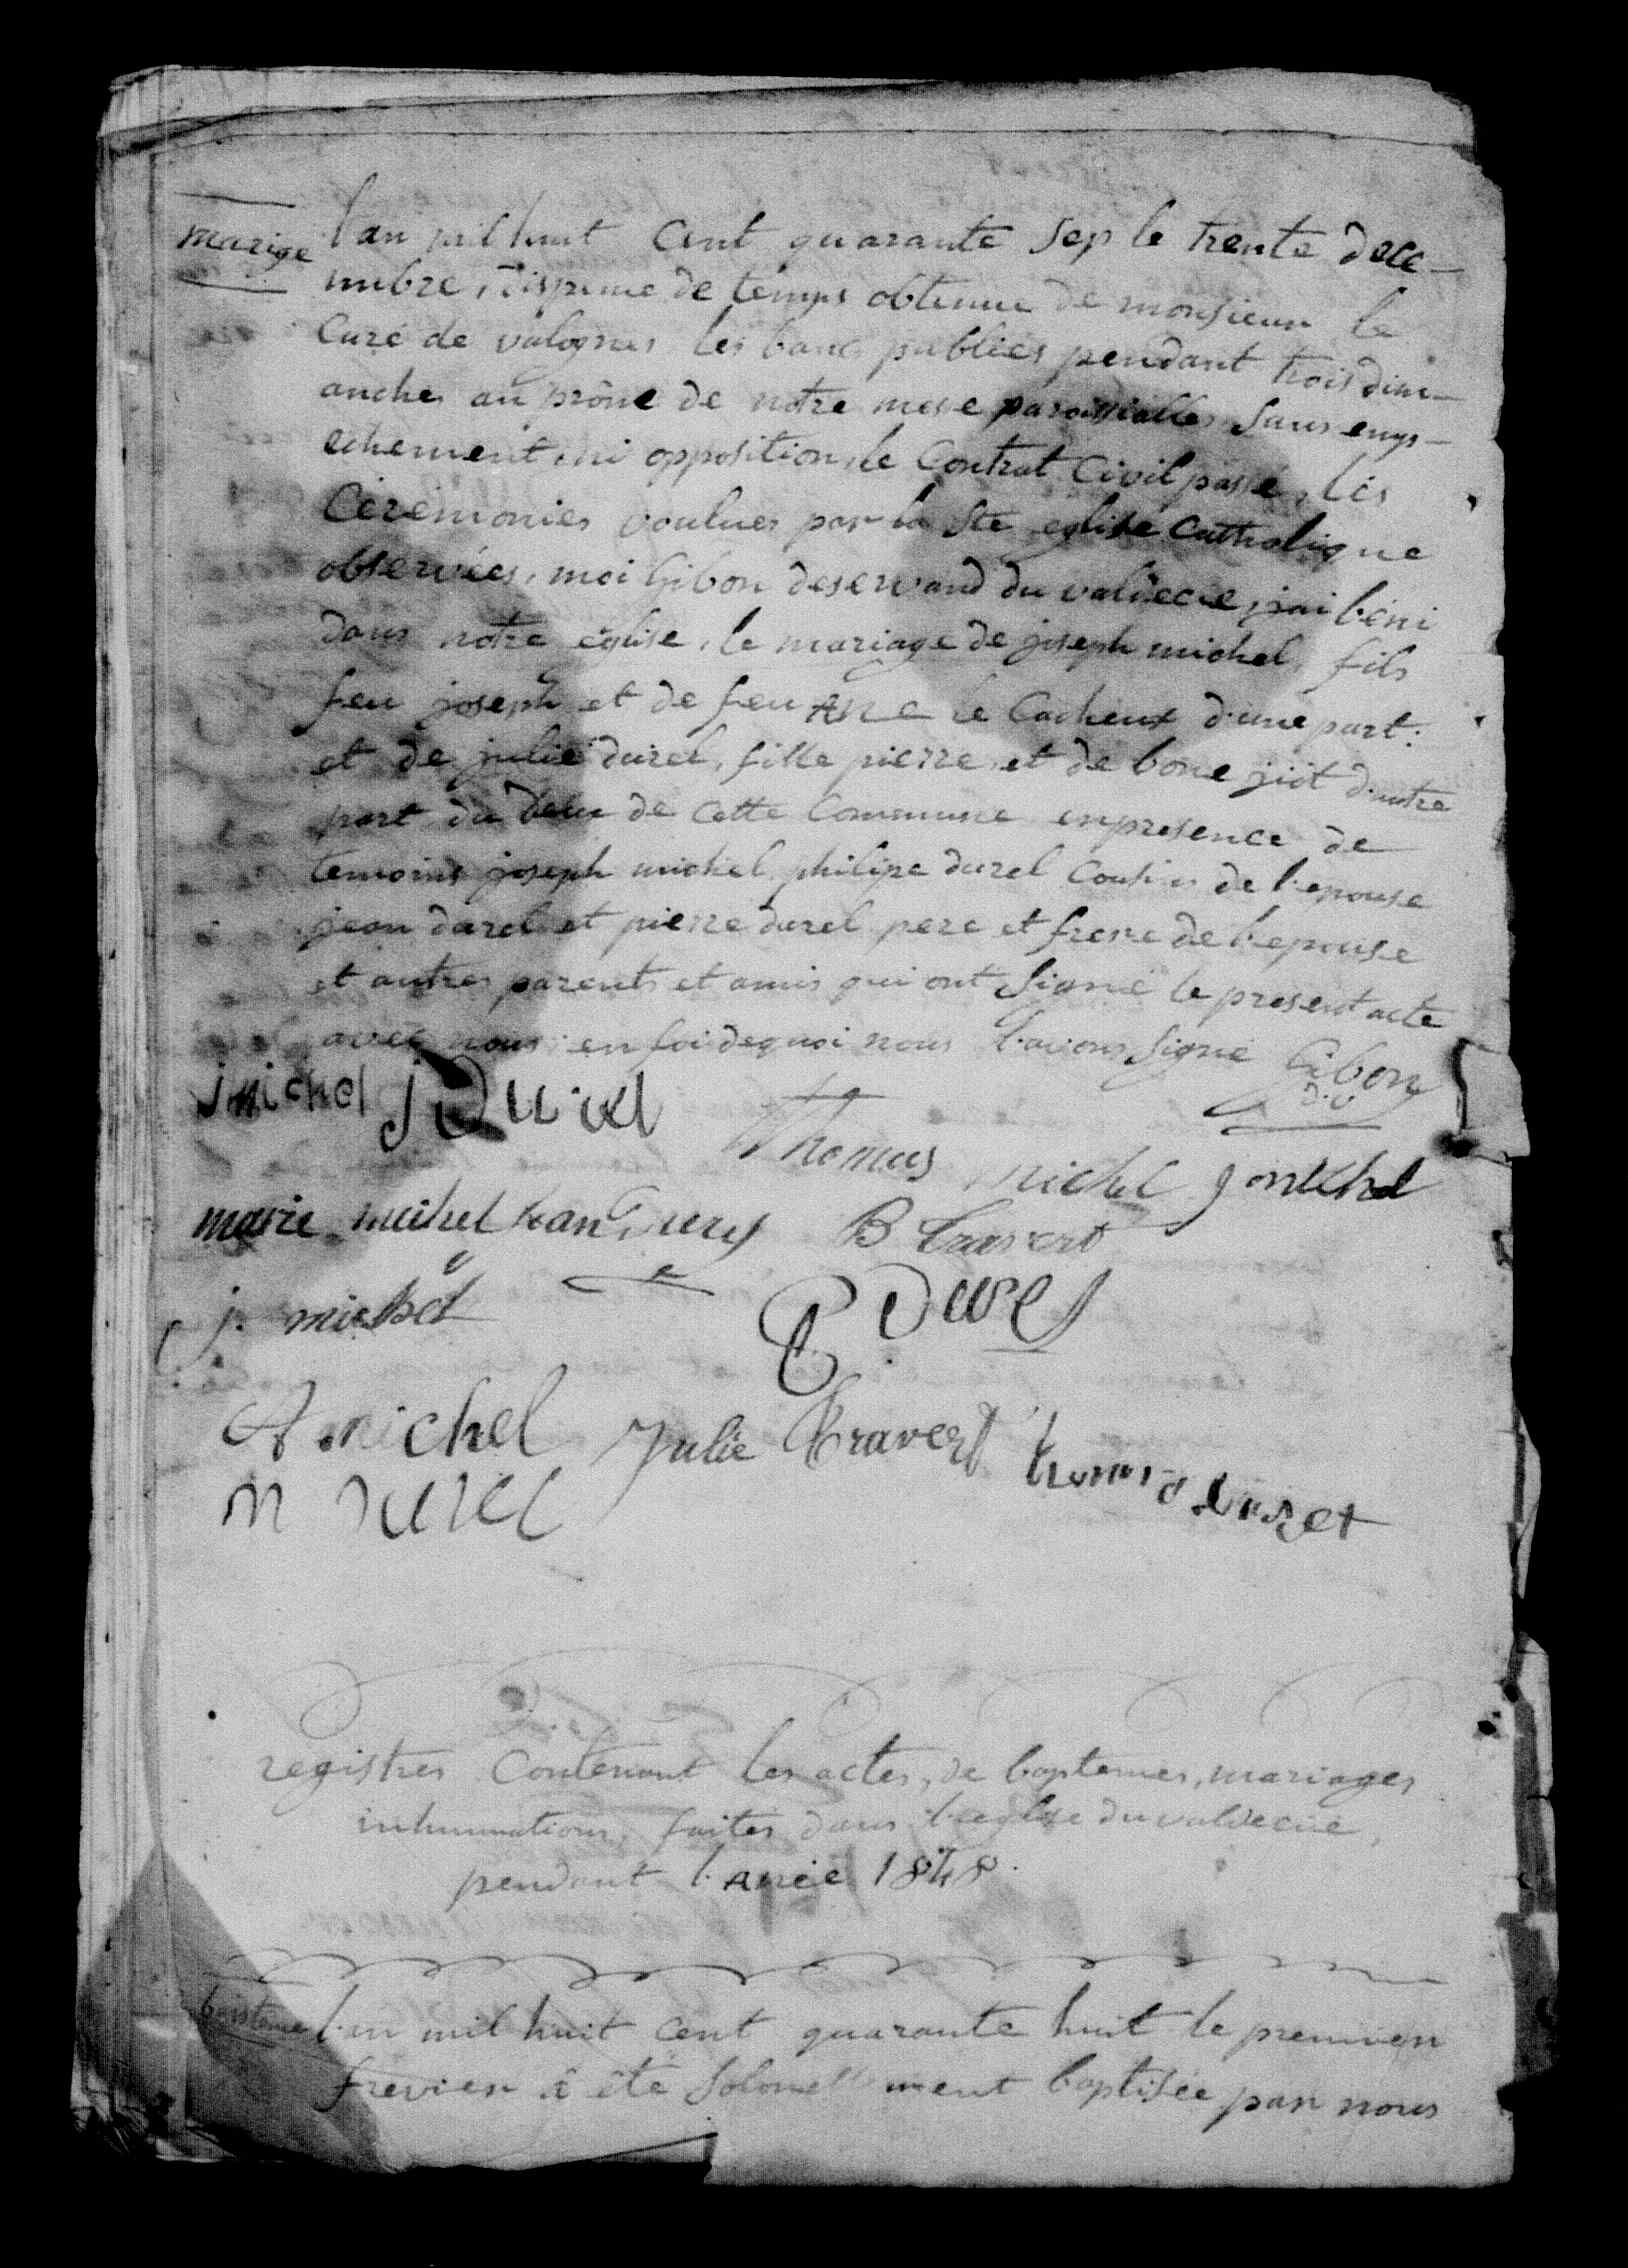 marige
l'an mil huit Cent quarante Sep le trente dece-
mbre, dispence de temps obtenue de monsieur le
Curé de valognes les bans publiés pendant trois dim-
anches au prône de notre mese paroissialle, Sans emp-
echement, ni opposition, le Contrat Civil passé, les
Cérémonies voulues par la Ste eglise Catholique
observées, moi Gibon deservand du valdecie, j'ai béni
dans notre église, le mariage de joseph michel, fils
feu joseph et de feu Ane le Cacheux d'une part:
et de julie durel, fille pierre, et de bone d'autre
part du deux de Cette Commune en presence de
temoins joseph michel, philipe durel Cousin de l'epouse
jean durel et pierre durel pere et frere de l'epouse
et autres parents et amis qui ont Signé le present acte
avec nous: en foi de quoi nous l'avons Signé Gibon
d.v
j michel j Durel
Thomas michel J michel
marie michel Jean Durel B Travert
j. michel P Durel
A michel Julie Travert
M Durel thomas Durel
registres Contenant les actes, de baptemes, mariages
inhumations, faites dans l'eglise du valdecie,
pendant l'Anée 1848.
baptême
l'an mil huit Cent quarante huit le premier
frevier à été Solonellement baptisée par nous